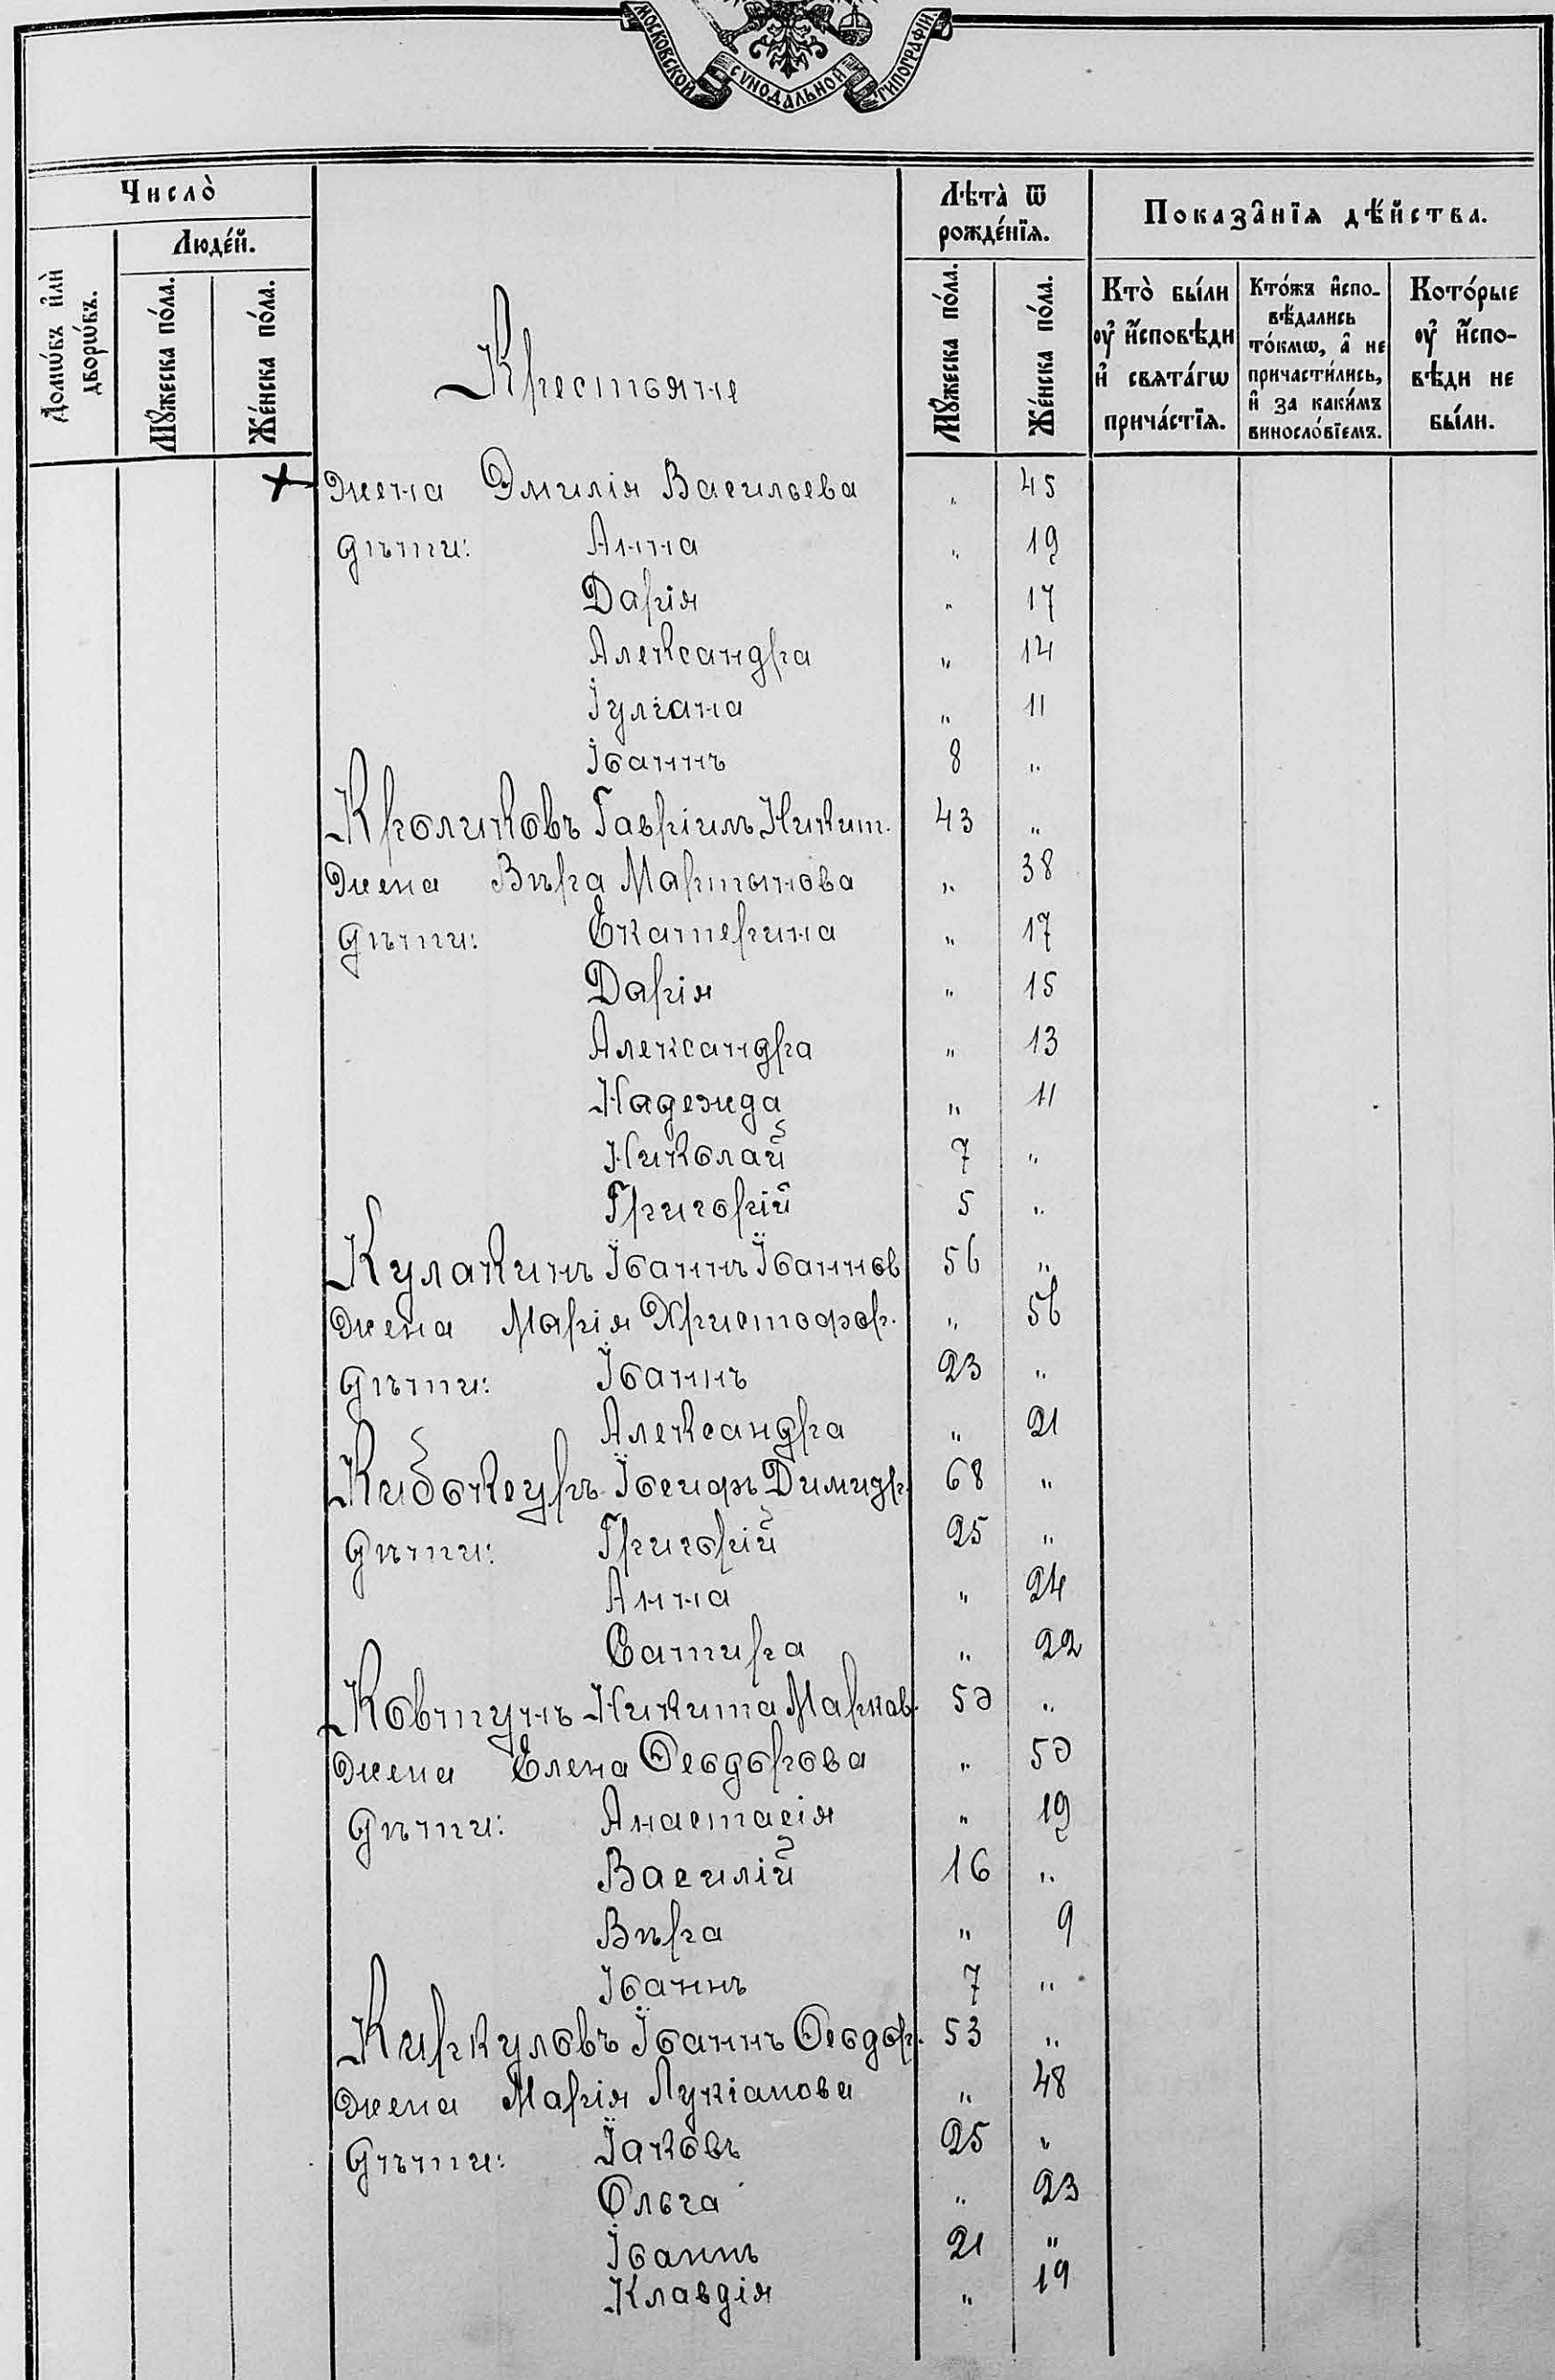 МОСКОВСКОЙ СѴНОДАЛЬНОЙ ТИПОГРАФІИ.
Число̀
Людéй.
Домѡ́въ и҆лѝ дворѡ́въ.
Мꙋ́жеска по́ла.
Же́нска по́ла.
Лѣта̀ ѿ рожде́нїѧ.
Мꙋ́жеска по́ла.
Же́нска по́ла.
Показа̑нїѧ дѣ́йства.
Кто̀ бы́ли ᲂу҆ и҆́сповѣди и҆ свѧта́гѡ прича́стїѧ.
Кто́жъ и҆спо-вѣ́дались то́кмѡ, а҆ не причасти́лись, и҆ за каки́мъ виносло́вїемъ.
Кото́рые ᲂу҆ и҆́спо-вѣди не бы́ли.
Крестьяне
жена Эмилія Васильева „ 45
дѣти: Анна „ 19
Дарія „ 17
Александра „ 14
Іуліана „ 11
Іоаннъ 8 „
Кроликовъ Гавріилъ Никит. 43 „
жена Вѣра Мартынова „ 38
дѣти: Екатерина „ 17
Дарія „ 15
Александра „ 13
Надежда „ 11
Николай 7 „
Григорій 5 „
Кулакинъ Іоаннъ Іоаннов 56 „
жена Марія Христофор. „ 56
дѣти: Іоаннъ 23 „
Александра „ 21
Іосифъ Димитр. 68 „
дѣти: Григорій 25 „
Анна „ 24
Сатира „ 22
Ковтунъ Никита Марков. 50 „
жена Елена Ѳеодорова „ 50
дѣти: Анастасія „ 19
Василій 16 „
Вѣра „ 9
Іоаннъ 7 „
Киркуловъ Іоаннъ Ѳеодор. 53 „
жена Марія Лукіанова „ 48
дѣти: Іаковъ 25 „
Ольга „ 23
Іоаннъ 21 „
Клавдія „ 19